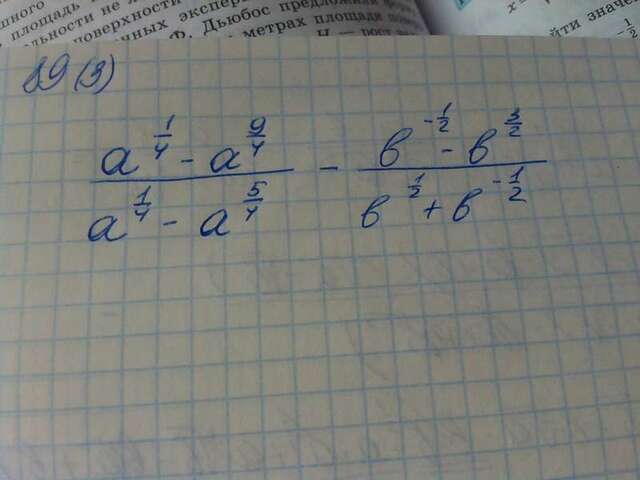 нного
площадь
альности не
поверхности
ных экспер
Ф. Дьюбос предложил
метрах площади
H — рост
x =
йти значе
1/2
89 (3)
(a^(1/4) - a^(9/4)) / (a^(1/4) - a^(5/4)) - (b^(-1/2) - b^(3/2)) / (b^(1/2) + b^(-1/2))